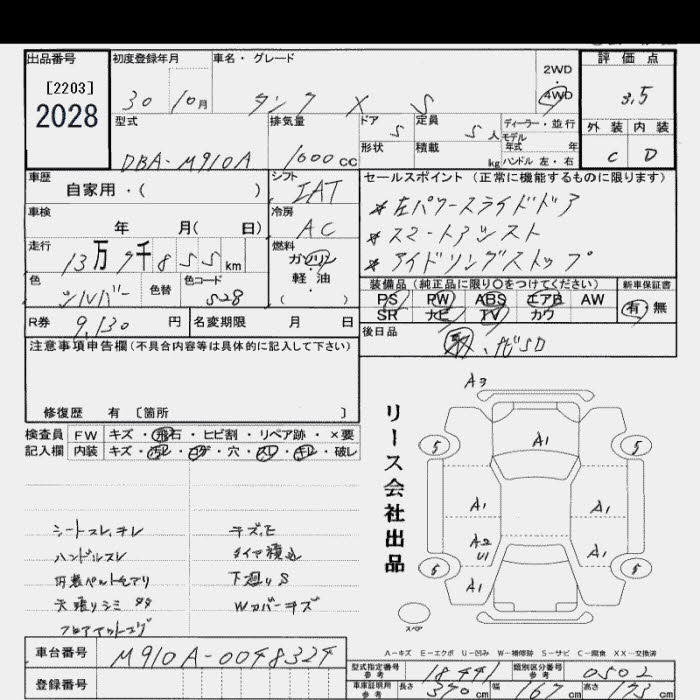 出品番号 初度登録年月 車名・グレード 評価点
[2203]
2028
30 10月 タンク X S 2WD 4WD 3.5
型式 排気量 ドア 定員 ディーラー・並行 外装 内装
DBA-M910A 1000cc 5 5人 モデル年式 年 C D
形状 積載 kg ハンドル 左・右
車歴 自家用・( ) シフト IAT セールスポイント (正常に機能するものに限ります)
車検 年 月( 日) 冷房 AC
*左パワースライドドア
*スマートアシスト
*アイドリングストップ
走行 13万7千855km 燃料 ガソリン・軽油・( )
色 シルバー 色替 色コード S28
装備品 (純正品に限り○をつけてください) 新車保証書
PS PW ABS エアB AW 有・無
SR ナビ TV カワ
R券 9,130円 名変期限 月 日
後日品 取、ナビSD
注意事項申告欄(不具合内容等は具体的に記入して下さい)
修復歴 有 [箇所 ]
検査員 FW キズ・飛石・ヒビ割・リペア跡・×要
記入欄 内装 キズ・汚レ・コゲ・穴・スレ・キレ・破レ
リース会社出品
A3
A1
5 5
A1 A1
A2 U1 A1
5 5
A1
スペア
シートスレ、キレ キズ、E
ハンドルスレ タイヤ積込
内装ペットモアリ 下廻りS
天張りシミ Wカバーキズ
A-キズ E-エクボ U-凹み W-補修跡 S-サビ C-腐食 XX-交換済
車台番号 M910A-0048324
登録番号
型式指定番号 参考 18441 類別区分番号 参考 0502
車庫証明用 参考 長さ 370cm 幅 167cm 高さ 173cm